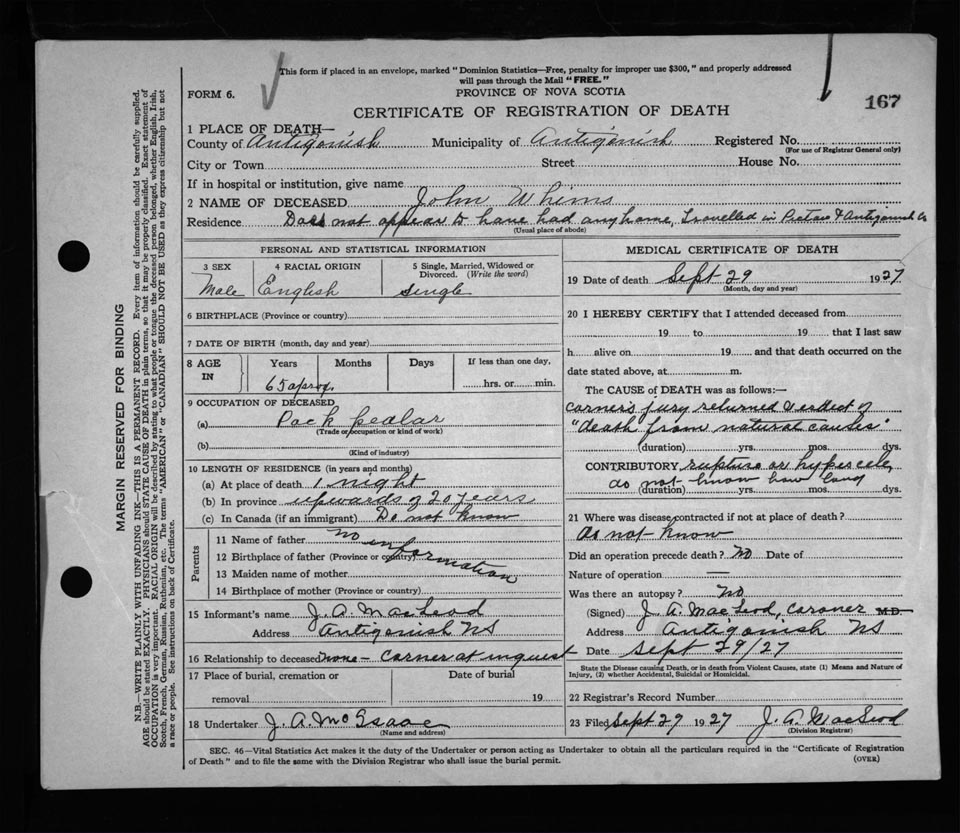 This form if placed in an envelope, marked "Dominion Statistics—Free, penalty for improper use $300," and properly addressed
will pass through the Mail "FREE."
FORM 6.
PROVINCE OF NOVA SCOTIA
167
CERTIFICATE OF REGISTRATION OF DEATH
1 PLACE OF DEATH—
County of Antigonish Municipality of Antigonish Registered No.
(For use of Registrar General only)
City or Town Street House No.
If in hospital or institution, give name
2 NAME OF DECEASED John Whims
Residence Does not appear to have had any home, Travelled in Pictou & Antigonish Co
(Usual place of abode)
PERSONAL AND STATISTICAL INFORMATION
3 SEX 4 RACIAL ORIGIN 5 Single, Married, Widowed or
Divorced. (Write the word)
Male English Single
6 BIRTHPLACE (Province or country)
7 DATE OF BIRTH (month, day and year)
8 AGE IN Years Months Days If less than one day,
65 approx. hrs. or min.
9 OCCUPATION OF DECEASED
(a) Pack pedlar
(Trade or occupation or kind of work)
(b)
(Kind of industry)
10 LENGTH OF RESIDENCE (in years and months)
(a) At place of death 1 night
(b) In province upwards of 20 years
(c) In Canada (if an immigrant) Do not know
Parents
11 Name of father no information
12 Birthplace of father (Province or country)
13 Maiden name of mother
14 Birthplace of mother (Province or country)
15 Informant's name J. A. MacLeod
Address Antigonish NS
16 Relationship to deceased none - corner at inquest
17 Place of burial, cremation or Date of burial
removal 19
18 Undertaker J. A. McIsaac
(Name and address)
MEDICAL CERTIFICATE OF DEATH
19 Date of death Sept 29 1927
(Month, day and year)
20 I HEREBY CERTIFY that I attended deceased from
19 to 19 that I last saw
h alive on 19 and that death occurred on the
date stated above, at m.
The CAUSE of DEATH was as follows:—
corner's jury returned verdict of
"death from natural causes"
(duration) yrs. mos. dys.
CONTRIBUTORY rupture or
do not know how long
(duration) yrs. mos. dys.
21 Where was disease contracted if not at place of death?
do not know
Did an operation precede death? No Date of
Nature of operation —
Was there an autopsy? No
(Signed) J. A. MacLeod, coroner M.D.
Address Antigonish NS
Date Sept 29/27
State the Disease causing Death, or in death from Violent Causes, state (1) Means and Nature of
Injury, (2) whether Accidental, Suicidal or Homicidal.
22 Registrar's Record Number
23 Filed Sept 29 1927 J. A. MacLeod
(Division Registrar)
SEC. 46—Vital Statistics Act makes it the duty of the Undertaker or person acting as Undertaker to obtain all the particulars required in the "Certificate of Registration
of Death" and to file the same with the Division Registrar who shall issue the burial permit.
(OVER)
MARGIN RESERVED FOR BINDING
N.B.—WRITE PLAINLY WITH UNFADING INK—THIS IS A PERMANENT RECORD. Every item of information should be carefully supplied.
AGE should be stated EXACTLY. PHYSICIANS should STATE CAUSE OF DEATH in plain terms, so that it may be properly classified. Exact statement of
OCCUPATION is very important. RACIAL ORIGIN will be described by stating to what people or tongue the deceased person belonged, whether English, Irish,
Scotch, French, German, Russian, Ruthenian, etc. The terms "AMERICAN" or "CANADIAN" SHOULD NOT BE USED as they express citizenship but not
a race or people. See instructions on back of Certificate.